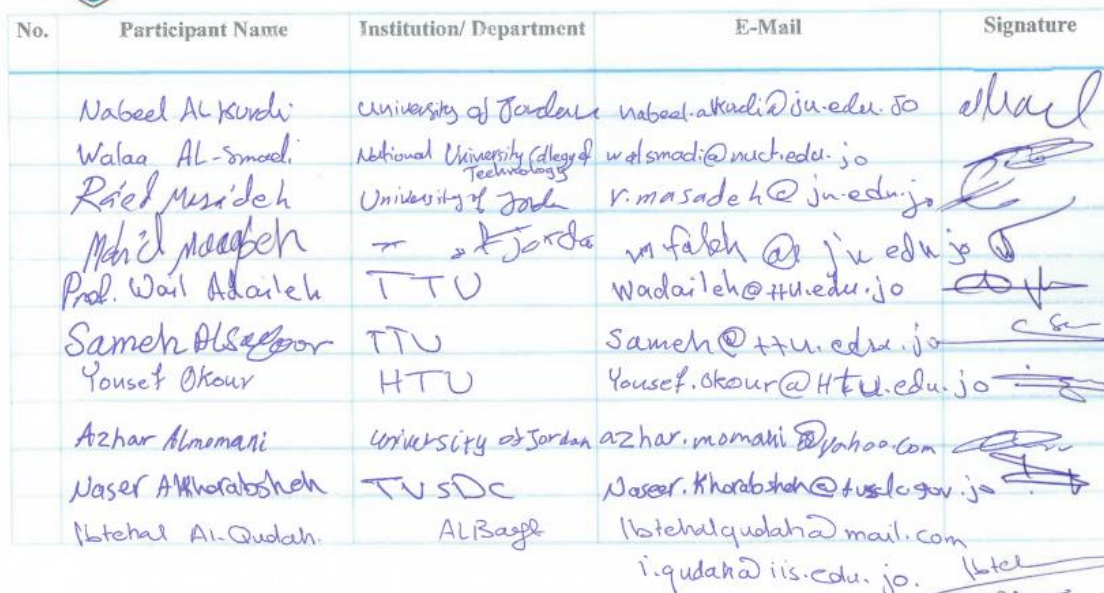 No. Participant Name Institution/ Department E-Mail Signature
Nabeel AL Kurdi University of Jordan nabeel.alkurdi@ju.edu.jo
Walaa AL-Smadi National University College of Technology walsmadi@nuct.edu.jo
Ra'ed Masa'deh University of Jordan r.masadeh@ju.edu.jo
jorda mfaleh@ju.edu.jo
Prof. Wail Adaileh TTU wadaileh@ttu.edu.jo
Sameh TTU Sameh@ttu.edu.jo
Yousef Okour HTU Yousef.Okour@Htu.edu.jo
Azhar Almomani University of Jordan azhar.momani@yahoo.com
Naser Alkhorabsheh TVSDC
Ibtehal Al-Qudah. Ibtehalqudah@mail.com
i.qudah@iis.edu.jo. Ibteh